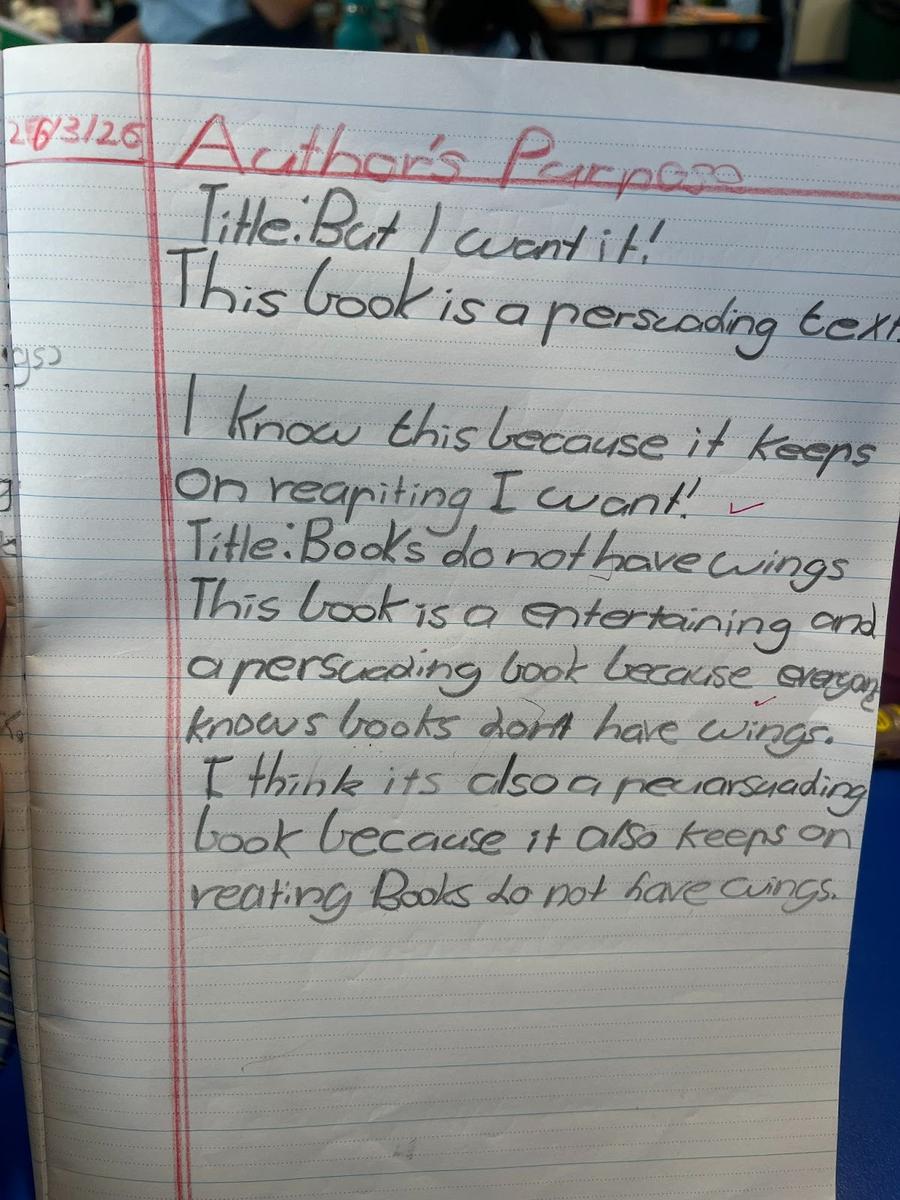 26/3/26 Author's Purpose
Title: But I want it!
This book is a persuading text.
I know this because it keeps
on reapiting I want!
Title: Books do not have wings
This book is a entertaining and
a persuading book because everyone
knows books don't have wings.
I think its also a peuarsuading
book because it also keeps on
reating Books do not have wings.